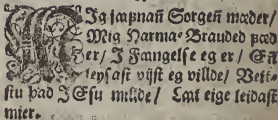 JAg jæpnañ Sorgeñ mæder/
Mig Harma-Brauded þœd
er/ J Fængelse eg er/ Eñ
leysast vijst eg villde/ Veit-
stu þad JEsu millde/ Lœt eige leidast
mier.